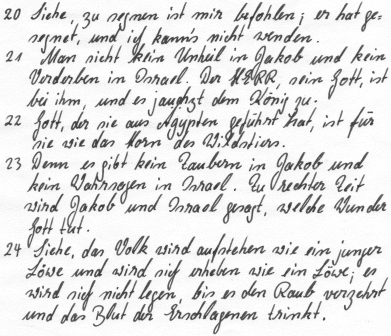 20 Siehe, zu segnen ist mir befohlen; er hat ge-
segnet, und ich kann's nicht wenden.
21 Man sieht kein Unheil in Jakob und kein
Verderben in Israel. Der HERR, sein Gott, ist
bei ihm, und es jauchzt dem König zu.
22 Gott, der sie aus Ägypten geführt hat, ist für
sie wie das Horn des Wildstiers.
23 Denn es gibt kein Zaubern in Jakob und
kein Wahrsagen in Israel. Zu rechter Zeit
wird Jakob und Israel gesagt, welche Wunder
Gott tut.
24 Siehe, das Volk wird aufstehen wie ein junger
Löwe und wird sich erheben wie ein Löwe; es
wird sich nicht legen, bis es den Raub verzehrt
und das Blut der Erschlagenen trinkt.